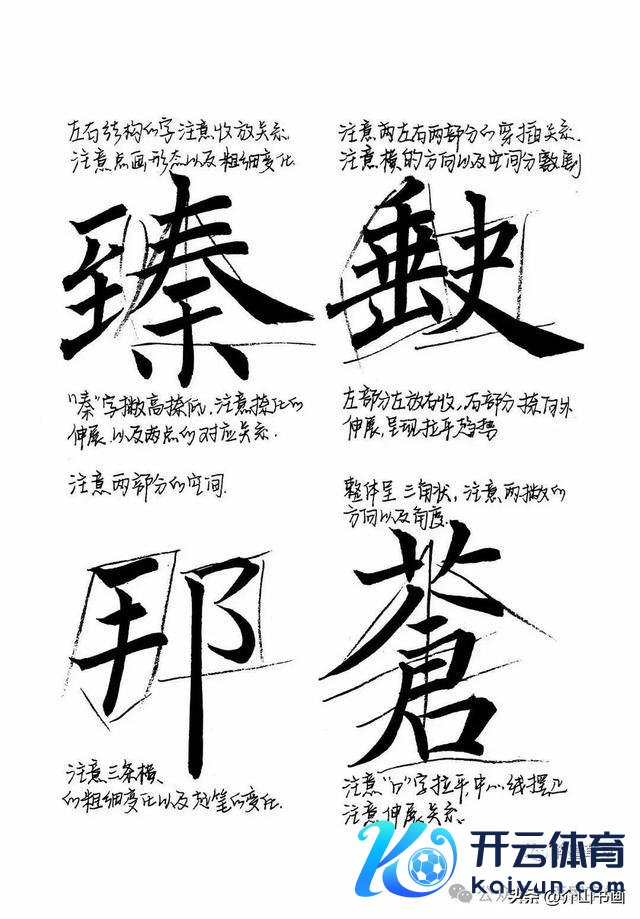 左右结构的字注意收放关系
注意点画形态以及粗细变化
臻
"秦"字撇高捺低,注意捺画的
伸展,以及两点的对应关系.
注意两左右两部分的穿插关系.
注意横的方向以及空间分割
左部分左放右收,右部分捺向外
伸展,呈现拉平趋势
注意两部分的空间.
邦
注意三条横
的粗细变化以及起笔的变化.
整体呈三角状,注意两撇的
方向以及角度.
蒼
注意"口"字拉平中心线摆正
注意伸展关系.
开云体育
kaiyun.com
头条@介山书画